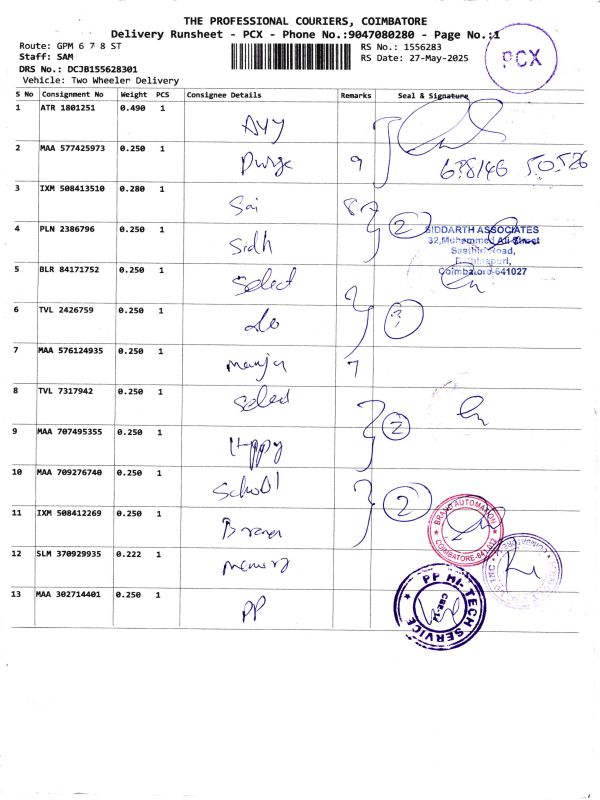 THE PROFESSIONAL COURIERS, COIMBATORE
Delivery Runsheet - PCX - Phone No.:9047080280 - Page No.:1
Route: GPM 6 7 8 ST
RS No.: 1556283
Staff: SAM
RS Date: 27-May-2025
DRS No.: DCJB155628301
Vehicle: Two Wheeler Delivery
PCX
S No Consignment No Weight PCS Consignee Details Remarks Seal & Signature
1 ATR 1801251 0.490 1 Ayy
2 MAA 577425973 0.250 1 9
638146 50526
3 IXM 508413510 0.280 1 Sai
4 PLN 2386796 0.250 1 Sidh 2
SIDDARTH ASSOCIATES
32,Muhammed Ali Street
Road,
Coimbatore-641027
5 BLR 84171752 0.250 1 Select
6 TVL 2426759 0.250 1
7 MAA 576124935 0.250 1 Manju 7
8 TVL 7317942 0.250 1 Select
9 MAA 707495355 0.250 1 Happy 2
10 MAA 709276740 0.250 1 School
11 IXM 508412269 0.250 1 2
BRAND AUTOMATION
COIMBATORE-641
12 SLM 370929935 0.222 1 Memory
13 MAA 302714401 0.250 1 PP
PP HI-TECH SERVICE
CBE-14